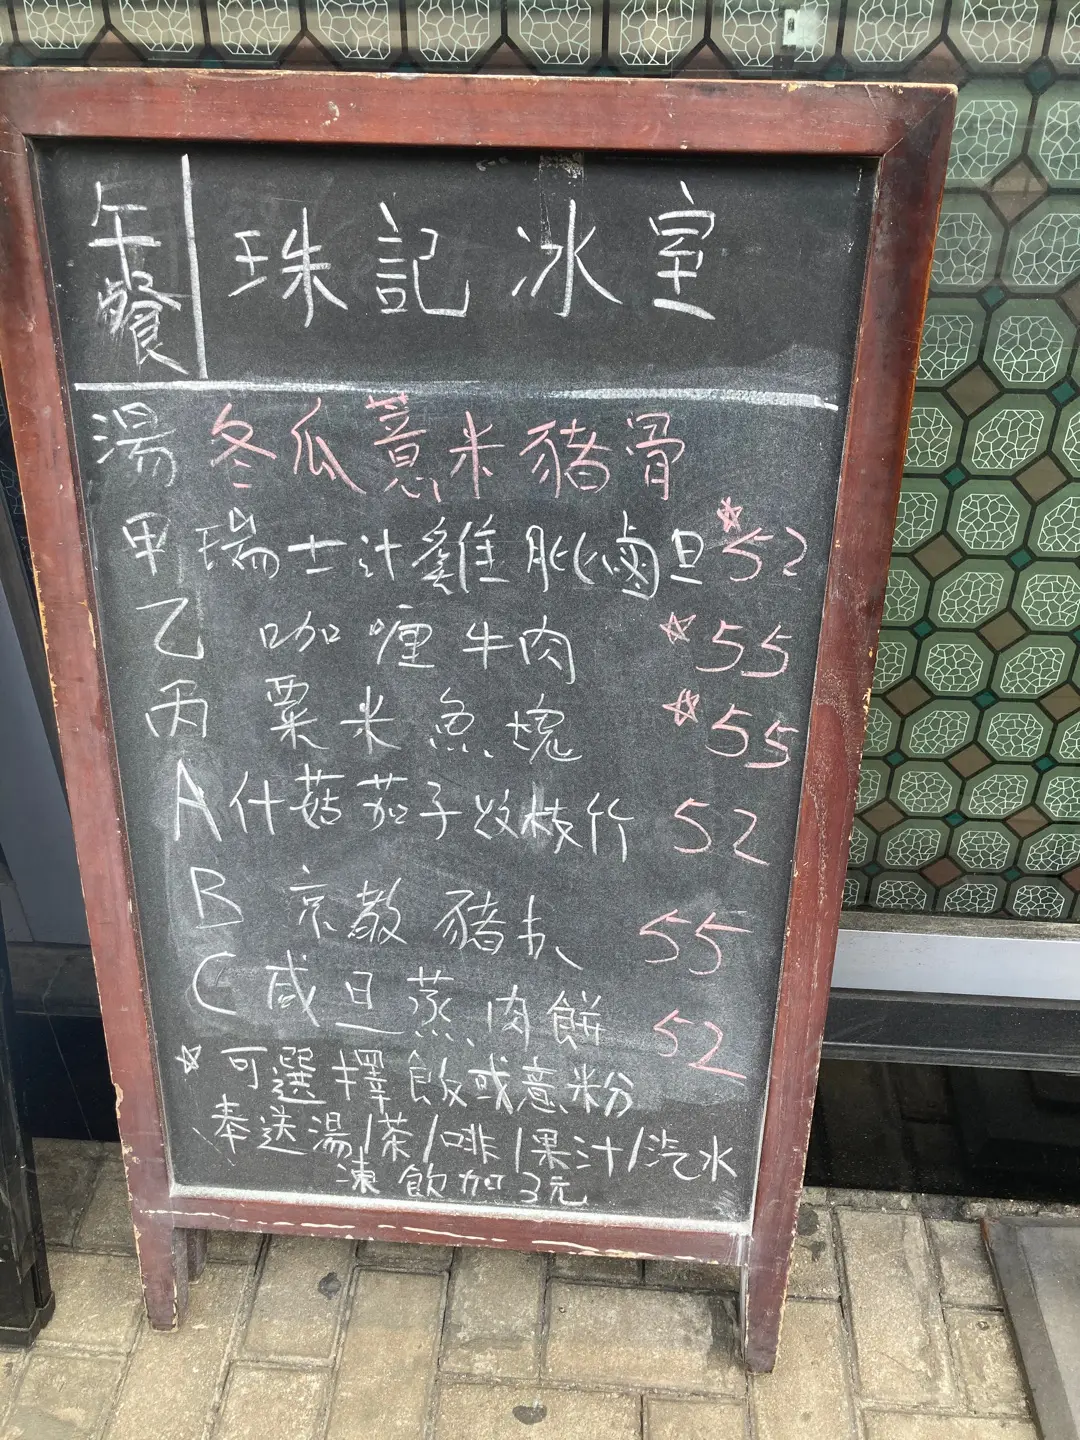 午餐
珠記冰室
湯 冬瓜薏米豬骨
甲 瑞士汁雞肶鹵旦 ☆52
乙 咖喱牛肉 ☆55
丙 粟米魚塊 ☆55
A 什菇茄子炆枝竹 52
B 京都豬扒 55
C 咸旦蒸肉餅 52
☆可選擇飯或意粉
奉送湯/茶/啡/果汁/汽水
凍飲加3元